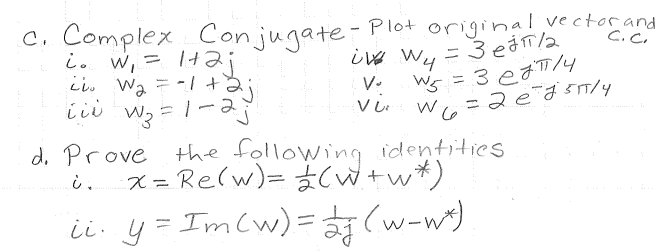 c. Complex Conjugate - Plot original vector and C.C.
i. w₁ = 1+2j
iv. w₄ = 3 e^{jπ/2}
ii. w₂ = -1 + 2j
v. w₅ = 3 e^{jπ/4}
iii w₃ = 1 - 2j
vi. w₆ = 2 e^{-j5π/4}
d. Prove the following identities
i. x = Re(w) = ½(w + w*)
ii. y = Im(w) = 1/2j (w - w*)